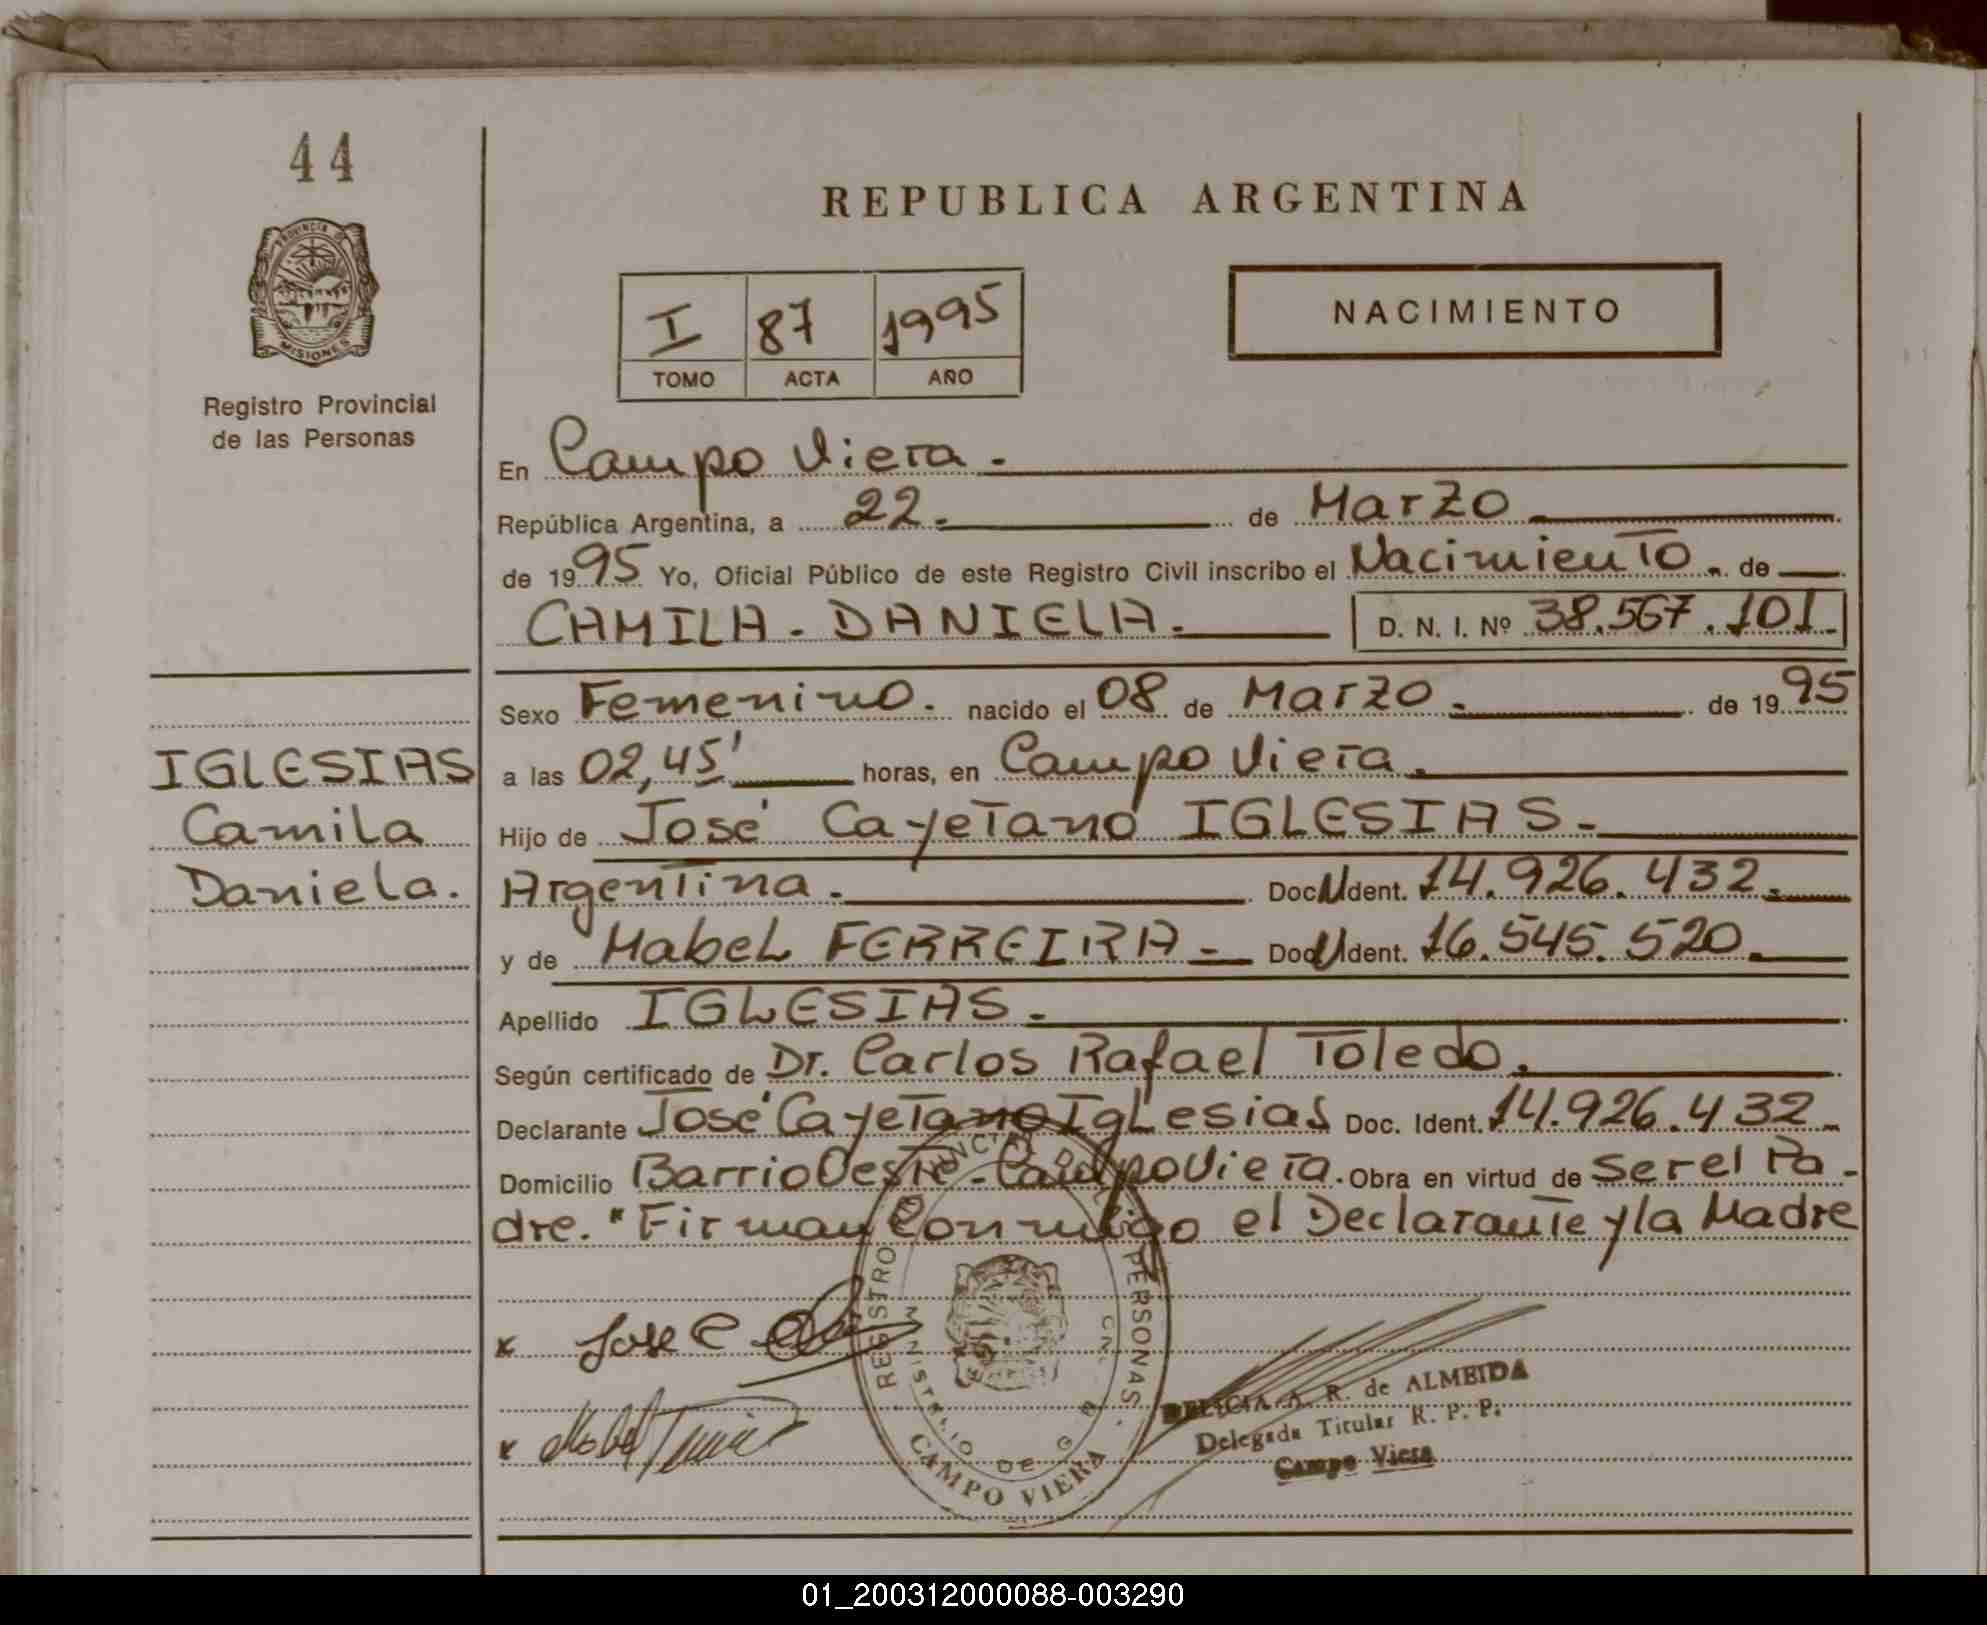 44
REPUBLICA ARGENTINA
PROVINCIA DE
MISIONES
Registro Provincial
de las Personas
I 87 1995
TOMO ACTA AÑO
NACIMIENTO
En Campo Viera.
República Argentina, a 22. de Marzo
de 1995 Yo, Oficial Público de este Registro Civil inscribo el Nacimiento. de
CAMILA. DANIELA. D. N. I. Nº 38.567.101.
Sexo Femenino. nacido el 08 de Marzo. de 1995
a las 02,45' horas, en Campo Viera.
Hijo de José Cayetano IGLESIAS.
Argentina. Doc. Ident. 14.926.432.
y de Mabel FERREIRA. Doc. Ident. 16.545.520.
Apellido IGLESIAS.
Según certificado de Dr. Carlos Rafael Toledo.
Declarante José Cayetano Iglesias Doc. Ident. 14.926.432.
Domicilio Barrio Oeste-Campo Viera. Obra en virtud de Ser el Pa-
dre. "Firman Conmigo el Declarante y la Madre
IGLESIAS
Camila
Daniela.
x Jose C
x Mabel
REGISTRO PERSONAS
CAMPO VIERA
A. R. de ALMEIDA
Delegada Titular R. P. P.
Campo Viera
01_200312000088-003290